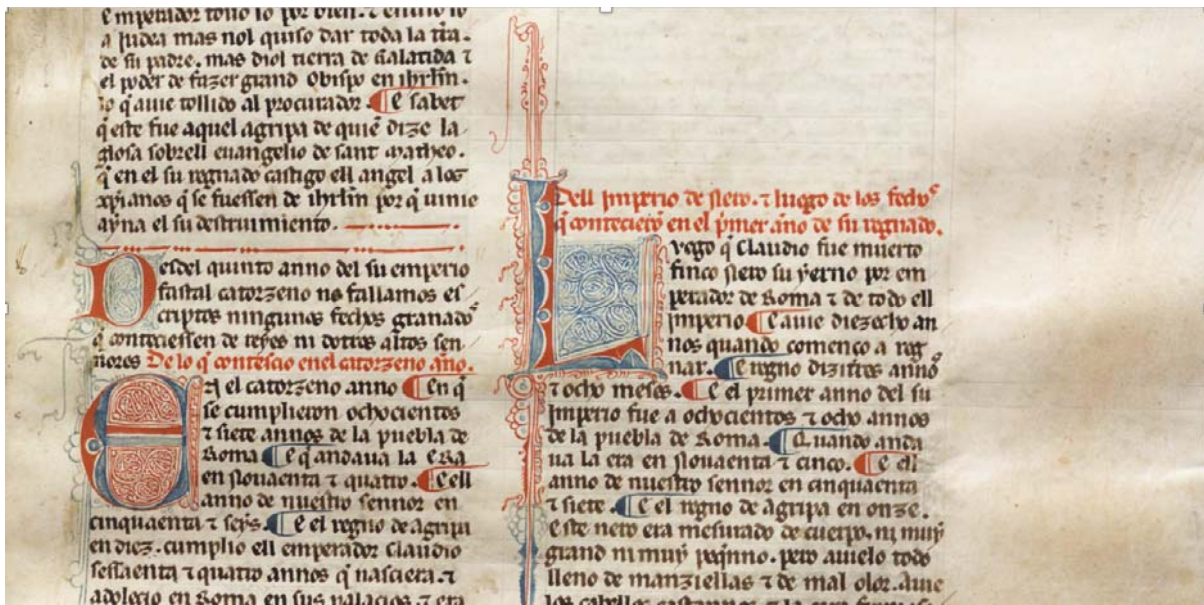 emperador touo lo por bien. ⁊ enuio lo
a judea mas nol quiso dar toda la tr̃ra.
de su padre. mas diol tierra de Galatida ⁊
el poder de fazer grand Obispo en ihrl̃m.
lo q̃ auie tollido al procurador. E sabet
q̃ este fue aquel agripa de quiẽ dize la
glosa sobrell euangelio de sant Matheo.
q̃ en el su regnado castigo ell angel a los
xp̃ianos q̃ se fuessen de ihrl̃m por q̃ uinie
ayna el su destruimiento.
Desdel quinto anno del su emperio
fastal catorzeno no fallamos es
criptos ningunos fechos granados
q̃ conteciessen de reyes ni dotros altos sen
nores De lo q̃ contescio enel catorzeno año.
En el catorzeno anno En q̃
se cumplieron ochocientos
⁊ siete annos de la puebla de
Roma E q̃ andaua la Era
en Nouaenta ⁊ quatro. E ell
anno de nuestro sennor en
cinquaenta ⁊ seys. E el regno de agripa
en diez. cumplio ell emperador Claudio
sessaenta ⁊ quatro annos q̃ nasciera. ⁊
adolecio en Roma en sus palacios. ⁊ era
Dell Imperio de Nero. ⁊ luego de los fechos
q̃ contecierõ en el p̃mer anno de su regnado.
Luego q̃ Claudio fue muerto
finco Nero su yerno por em
perador de Roma ⁊ de todo ell
imperio E auie diezocho an
nos quando comenco a reg
nar. E regno diziT̃res annos
⁊ ocho meses. E el primer anno del su
Imperio fue a ochocientos ⁊ ocho annos
de la puebla de Roma. Quando anda
ua la era en Nouaenta ⁊ cinco. E ell
anno de nuestro sennor en cinquaenta
⁊ siete. E el regno de agripa en onze.
Este nero era mesurado de cuerpo. ni muy
grand ni muy peq̃nno. pero auielo todo
lleno de manziellas ⁊ de mal olor. Auie
los cabellos castannos ⁊ la